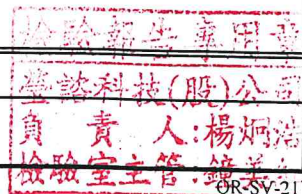 檢驗報告專用章
瑩諮科技(股)公司
負責人:楊炯
檢驗室主管:鐘美
OR-SV-21